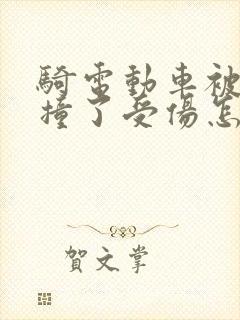 騎電動車被
撞了受傷怎
賀文掌